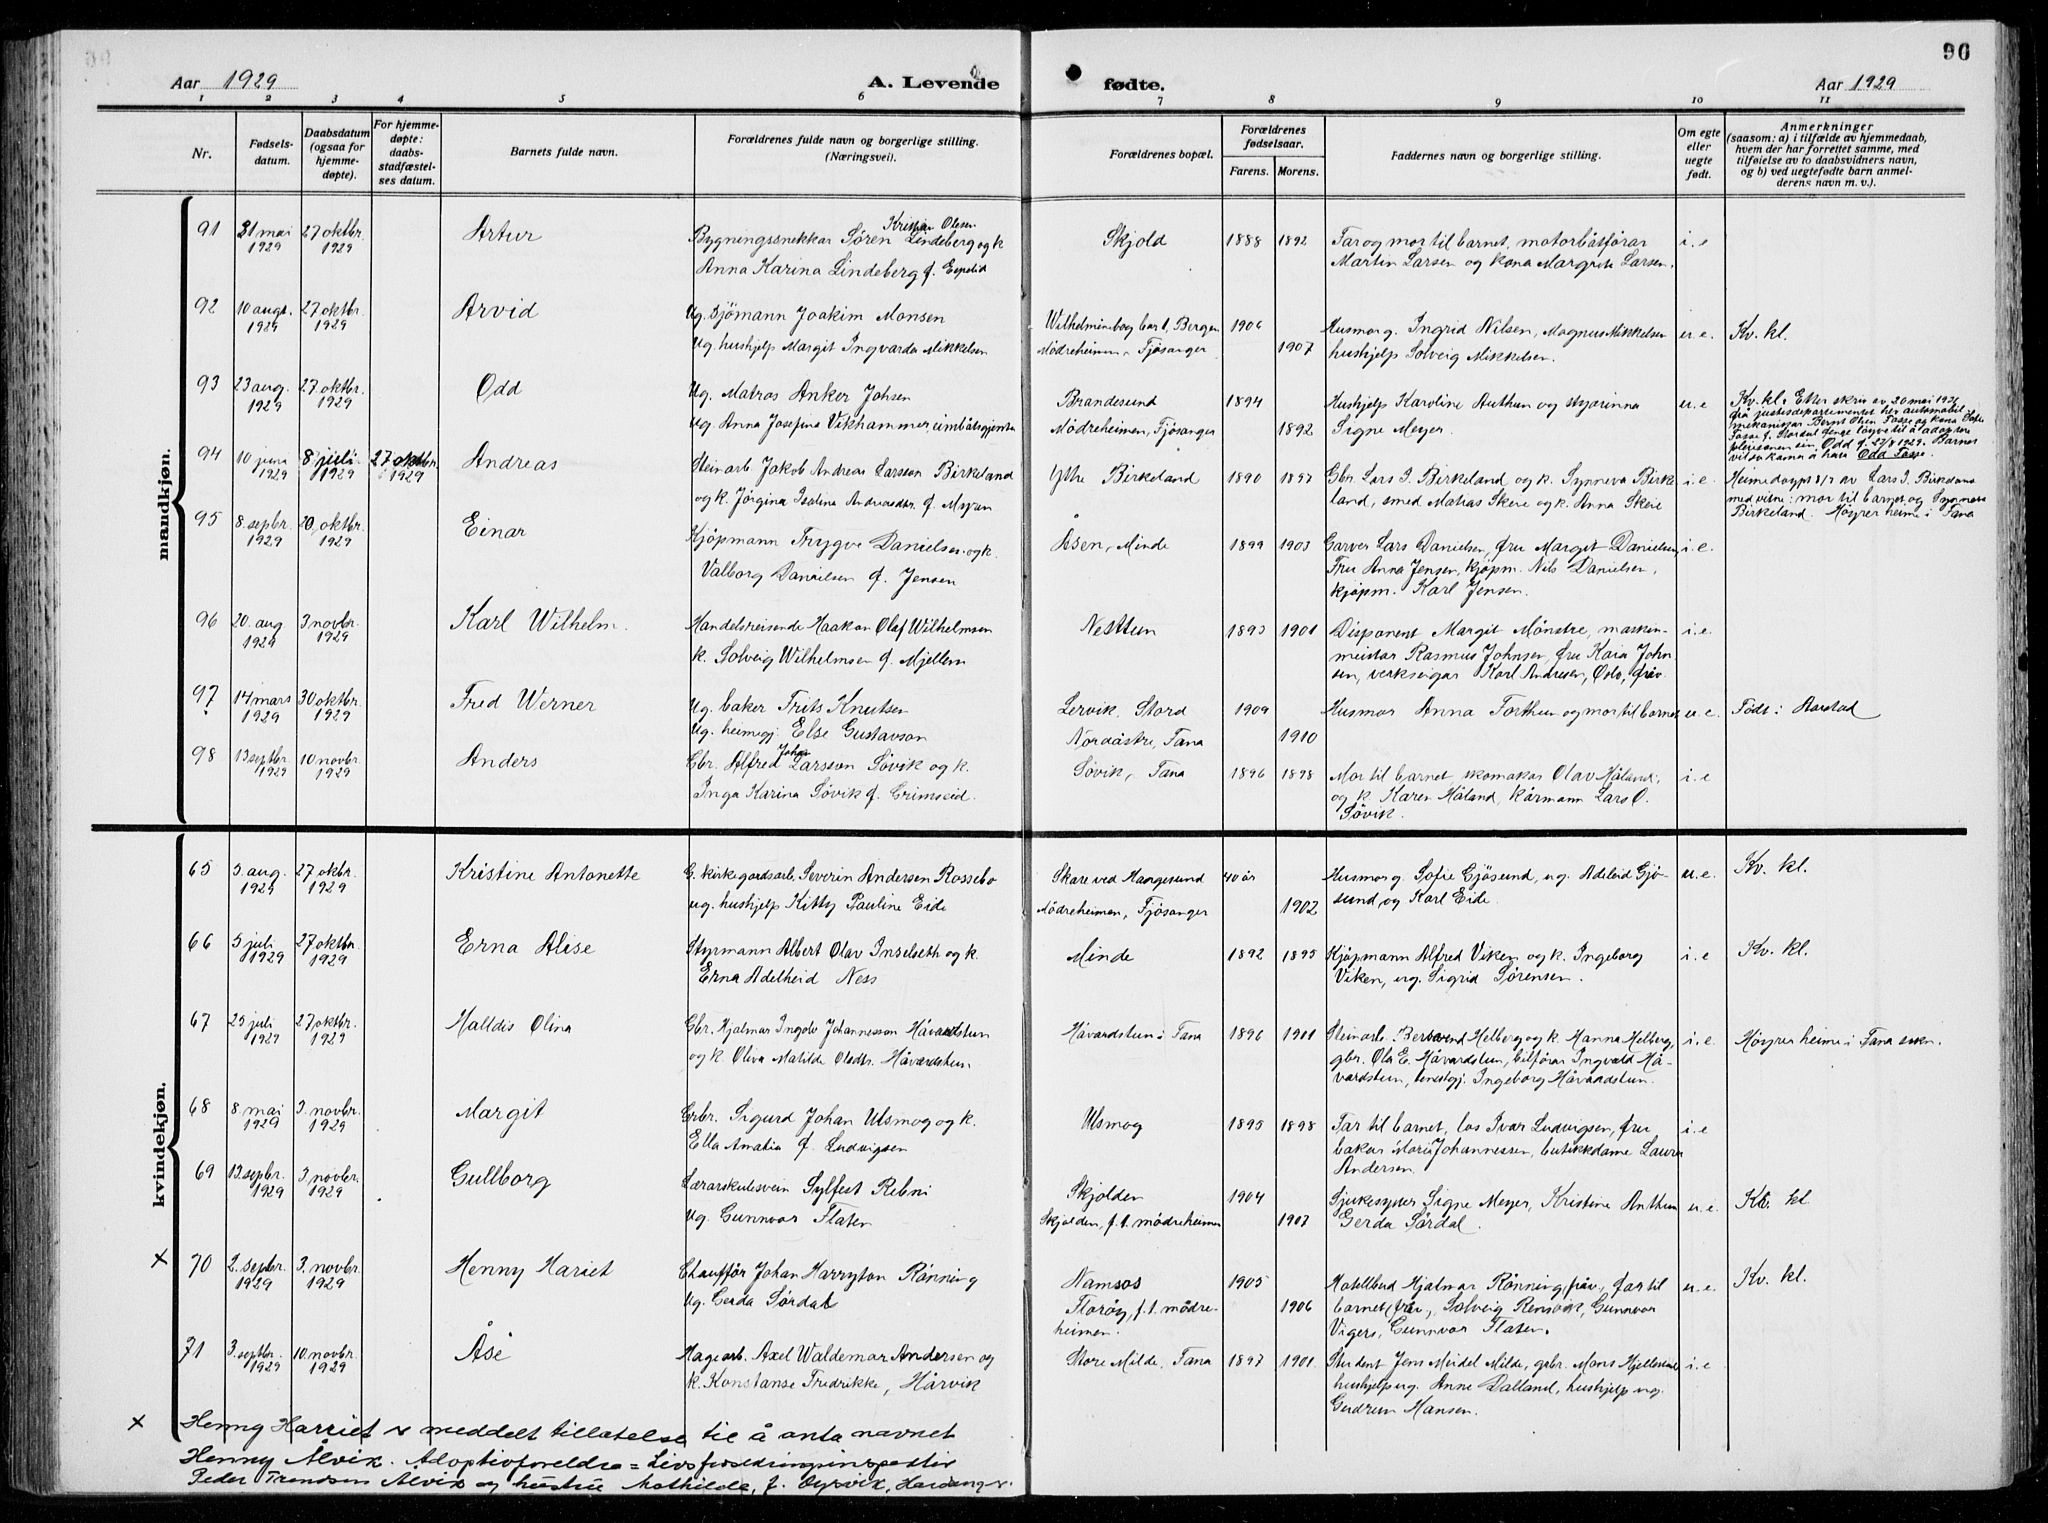 96
Aar 1929
A. Levende fødte.
Aar 1929
1 2 3 4 5 6 7 8 9 10 11
Nr.
Fødsels-
datum.
Daabsdatum
(ogsaa for
hjemme-
døpte).
For hjemme-
døpte:
daabs-
stadfæstel-
ses datum.
Barnets fulde navn.
Forældrenes fulde navn og borgerlige stilling.
(Næringsvei).
Forældrenes bopæl.
Forældrenes
fødselsaar.
Farens. Morens.
Faddernes navn og borgerlige stilling.
Om egte
eller
uegte
født.
Anmerkninger
(saasom: a) i tilfælde av hjemmedaab,
hvem der har forrettet samme, med
tilføielse av to daabsvidners navn,
og b) ved uegtefødte barn anmel-
derens navn m. v.).
mandkjøn.
91
31 mai
1929
27 oktbr.
1929
Artur
Kristian Olesen
Bygningssnekkar Søren Lindeberg og k
Anna Karina Lindeberg f. Espelid
Skjold
1888 1892
Far og mor til barnet, motorbåtförar
Martin Larsen og kona Margrete Larsen.
i. e
92
10 augs.
1929
27 oktbr.
1929
Arvid
Ug. sjömann Joakim Monsen
Ug. hushjelp Margit Ingvarda Mikkelsen
Wilhelmineborg 1, Bergen
Mödreheimen, Fjösanger
1906
1907
Husmor g. Ingrid Nilsen, Magnus Mikkelsen
hushjelp Solveig Mikkelsen.
u. e.
Kv. kl.
93
23 aug.
1929
27. oktbr.
1929
Odd
Ug. Matros Anker Johsen
Ug. Anna Josefina Vikhammer,
Brandesund
Mödreheimen, Fjösanger
1894
1892
Hushjelp Karoline Authun og
Signe Meyer.
u. e
Kv. kl. Etter skriv av 20 mai 1931
frå justisdepartementet hev automobil-
mekanikar Bernt Olsen Fosse og kona
Odd Fosse.
94
10 juni
1929
8 juli
1929
27 oktbr.
1929
Andreas
Steinarb. Jakob Andreas Larsson Birkeland
og k. Jörgina Isaline Andreasdtr. f. Myran
Ytre Birkeland
1890 1897
Gbr. Lars I. Birkeland og k. Synneva Birke
land, smed Matias Skeie og k. Anna Skeie
i. e
Heimedöypt 8/7 av Lars I. Birkeland
med vitne: mor til barnet og Synneva
Birkeland. Höyrer heime i Fana
95
8. sepbr.
1929
20. oktbr.
1929
Einar
Kjöpmann Trygve Danielsen og k.
Valborg Danielsen f. Jensen
Åsen, Minde
1899 1903
Garver Lars Danielsen, fru Margit Danielsen
Fru Anna Jensen, kjöpm. Nils Danielsen,
kjöpm. Karl Jensen.
i. e.
96
20. aug
1929
3 novbr.
1929
Karl Wilhelm.
Handelsreisende Haakon Olaf Wilhelmsen
k. Solveig Wilhelmsen f. Mjellem
Nesttun
1893 1901
Disponent Margit Mönstre, maskin-
meistar Rasmus Johnsen, fru Kaia John
sen, verkseigar Karl Andresen, Oslo, fråv.
i. e.
97
14 mars
1929
30 oktbr.
1929
Fred Werner
Ug. baker Frits Knutsen
Ug. heimegj. Else Gustavson
Lervik, Stord
Nordåstre, Fana
1909
1910
Husmor Anna Forthun og mor til barnet
u. e.
Födt i Aarstad
98
13 septbr.
1929
10 novbr.
1929
Anders
Johan
Gbr. Alfred Larsson Søvik og k.
Inga Karina Søvik f. Grimseid.
Søvik, Fana
1896 1898
Mor til barnet, skomakar Olav Håland,
og k. Karen Håland, kårmann Lars O.
Søvik.
i. e
kvindekjøn.
65
5. aug.
1929
27 oktbr.
1929
Kristine Antonette
G. kirkegardsarb. Severin Andersen Rossebø
ug. hushjelp Kitty Pauline Eide
Skare ved Haugesund
Mödreheimen, Fjösanger
40 år
1902
Husmor g. Sofie Gjösund, ug. Adeleid Gjö-
sund, og Karl Eide.
u. e.
Kv. kl.
66
5 juli
1929
27 oktbr.
1929
Erna Alise
Styrmann Albert Olav Inselseth og k.
Erna Adelheid Ness
Minde
1892 1895
Kjöpmann Alfred Viken og k. Ingeborg
Viken, ug. Sigrid Sörensen.
i. e
Kv. kl.
67
25 juli
1929
27 oktbr.
1929
Halldis Olina
Gbr. Hjalmar Ingolv Johannesson Håvardstun
og k Oliva Matilde Olsdtr. Håvardstun
Håvardstun i Fana
1896 1901
Steinarb. Helberg og k. Hanna Helberg,
gbr. Ola E. Håvardstun, bilförar Ingvald Hå-
vardstun, tenestgj. Ingeborg Håvardstun.
i. e.
Höyrer heime i Fana sokn.
68
8. mai
1929
3. novbr.
1929
Margit
Grbr. Sigurd Johan Ulsmog og k.
Ella Amalia f. Ludvigsen
Ulsmog
1895 1898
Far til barnet, los Ivar Ludvigsen, fru
bakar Marie Johannessen, butikkdame Laura
Andersen.
i. e
69
13. sepbr.
1929
3 novbr.
1929
Gullborg
Lærarskulesvein Sylfest Rebni
Ug. Gunnvor Flaten
Skjolden
Skjolden, f. t. mödreheimen
1904
1907
Sjukesyster Signe Meyer, Kristine Anthun
Gerda Sördal.
u. e.
Kv. kl
×
70
2. sepbr.
1929
3. novbr.
1929
Henny Hariet
Chaufför Johan Harryton Rönning
Ug. Gerda Sördal
Namsos
Floröy, f. t. mödre-
heimen.
1905
1906
Hotellbud Hjalmar Rönning fråv, far til
barnet, fråv, Solveig Renvik, Gunnvor
Vigers, Gunnvor Flaten.
u. e.
Kv. kl.
71
3. septbr.
1929
10. novbr.
1929
Åse
Hagearb. Axel Waldemar Andersen og
k. Konstanse Fredrikke, Hårvik
Store Milde, Fana
1897 1901
Student Jens Meidel Milde, gbr. Mons Hjellestad
hushjelp ug. Anne Dalland, hushjelp ug.
Gudrun Hansen.
i. e
× Henny Harriet er meddelt tillatelse til å anta navnet
Henny Ålvik. Adoptivforeldre = Livsforsikringsinspektör
Peder Trondsen Ålvik og hustru Mathilde, f. Oysvik, Hardanger.